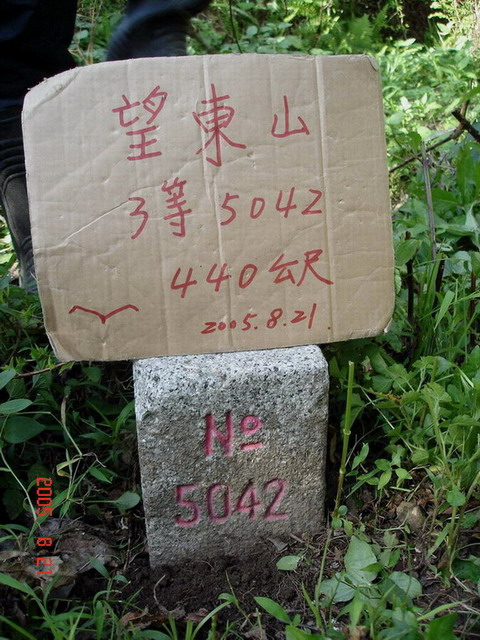 望東山
3等 5042
440公尺
2005.8.21.
No
5042
2005 8 21